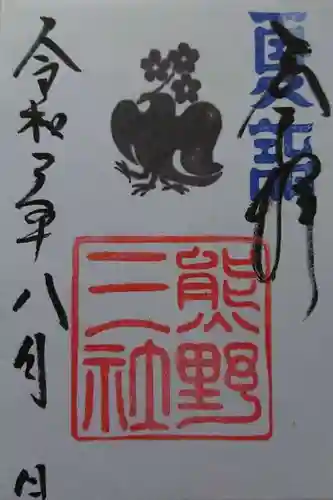 夏詣
奉拝
熊野
三社
令和元年八月 日